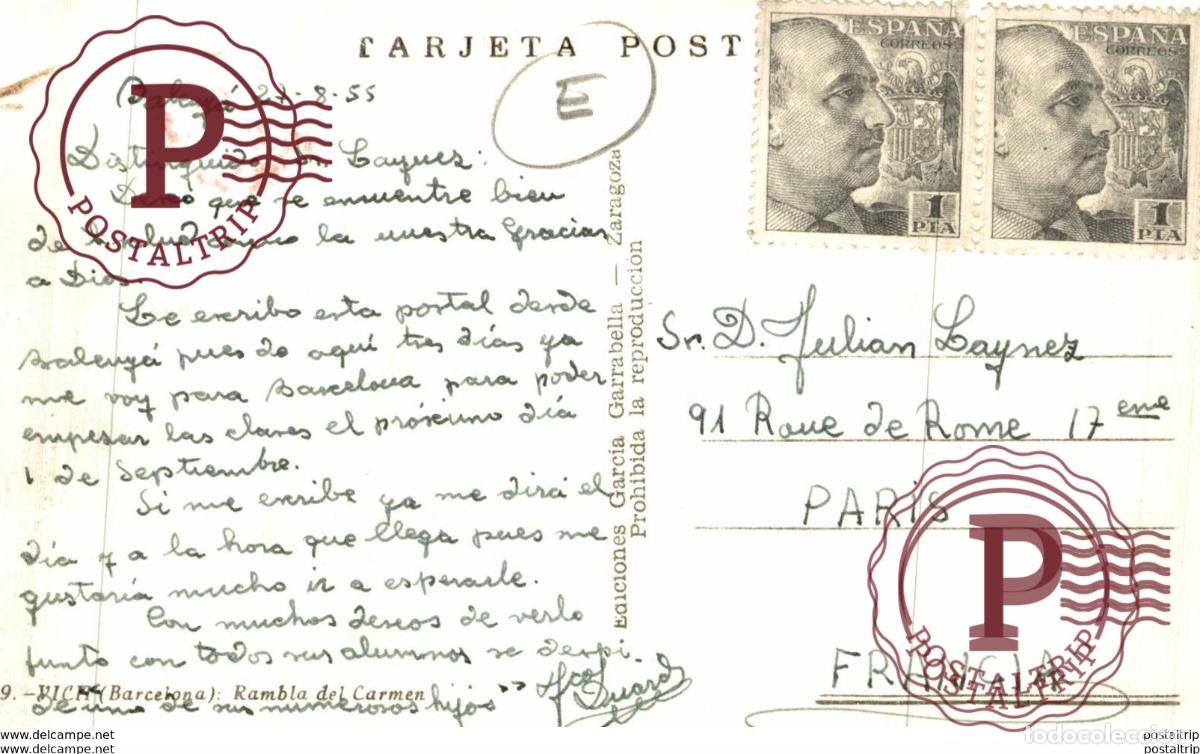 TARJETA POST
ESPAÑA
CORREOS
1
PTA
ESPAÑA
CORREOS
1
PTA
E
8-55
Laynez:
que se encuentre bien
de la nuestra Gracias
a Dios.
Le escribo esta postal desde
Balenyá pues de aquí tres días ya
me voy para Barcelona para poder
empesar las clases el próximo día
1 de Septiembre.
Si me escribe ya me dirá el
día y a la hora que llega pues me
gustaría mucho ir a esperarle.
Con muchos deseos de verlo
junto con todos sus alumnos se despi-
de uno de sus numerosos hijos
9. — VICH (Barcelona): Rambla del Carmen
Ediciones García Garrabella — Zaragoza
Prohibida la reproducción
Sr. D. Julian Laynez
91 Roue de Rome 17 eme
PARIS
FRANCIA
P
POSTALTRIP
P
POSTALTRIP
todocoleccion
www.bonanza.com
postaltrip
postaltrip
postaltrip